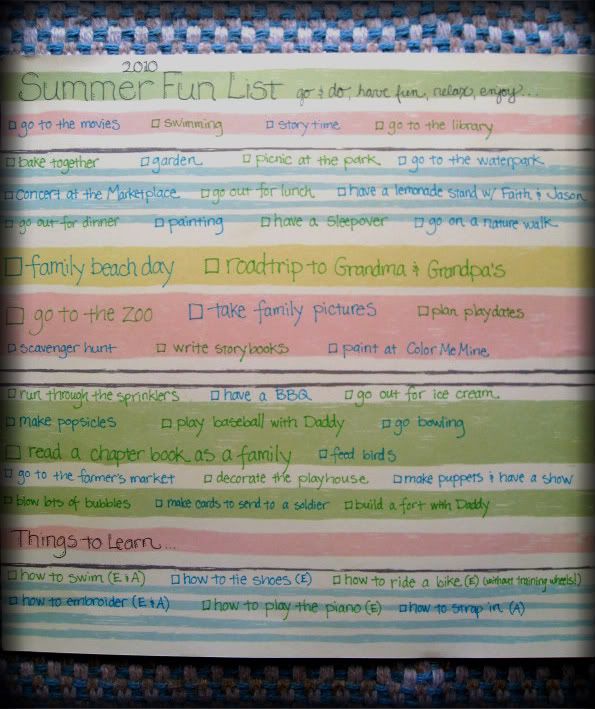 2010
Summer Fun List go & do, have fun, relax, enjoy...
go to the movies swimming story time go to the library
bake together garden picnic at the park go to the waterpark
concert at the Marketplace go out for lunch have a lemonade stand w/ Faith & Jason
go out for dinner painting have a sleepover go on a nature walk
family beach day roadtrip to Grandma & Grandpa's
go to the Zoo take family pictures plan playdates
scavenger hunt write storybooks paint at Color Me Mine
run through the sprinklers have a BBQ go out for ice cream
make popsicles play baseball with Daddy go bowling
read a chapter book as a family feed birds
go to the farmer's market decorate the playhouse make puppets & have a show
blow lots of bubbles make cards to send to a soldier build a fort with Daddy
Things to Learn...
how to swim (E & A) how to tie shoes (E) how to ride a bike (E) (without training wheels!)
how to embroider (E & A) how to play the piano (E) how to strap in (A)